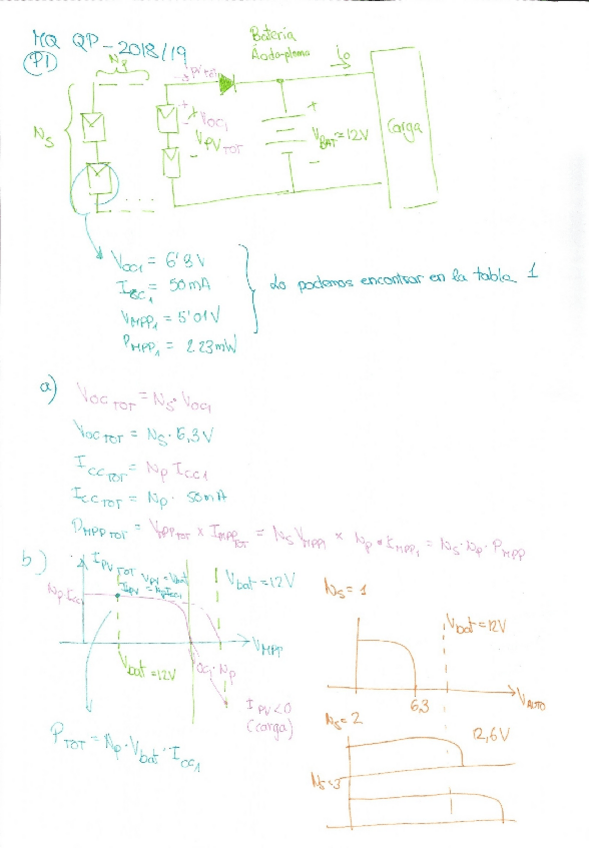 MQ QP-2018/19
P1
Np
Batería
Ácido-plomo
io
NS
+
VOC1
VPV TOT
-
+
VBAT = 12V
-
Carga
VOC1 = 6'3V
ISC1 = 50mA
VMPP1 = 5'01V
PMPP1 = 223mW
Lo podemos encontrar en la tabla 1
a)
VOC TOT = NS · VOC1
VOC TOT = NS · 6,3V
ICC TOT = Np ICC1
ICC TOT = Np · 50mA
PMPP TOT = VMPP TOT x IMPP TOT = NS VMPP1 x Np · IMPP1 = NS · Np · PMPP
b)
IPV TOT
VPV = Vbat
IPV = Np ICC1
Np·ICC1
Vbat = 12V
Vbat = 12V
VMPP
VOC1·Np
IPV < 0
(carga)
PTOT = Np · Vbat · IOC1
NS = 1
Vbat = 12V
6,3
NS = 2
12,6V
NS = 3